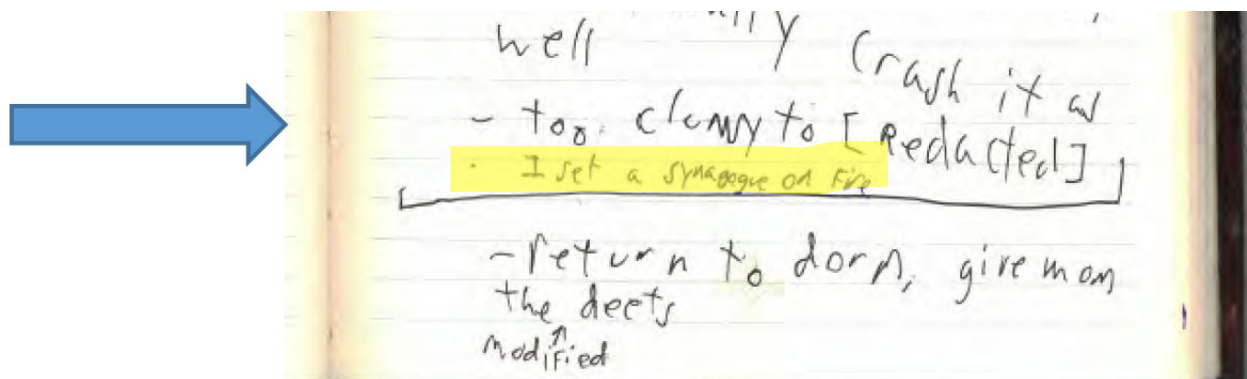 well crash it as
- too clumsy to [Redacted]
· I set a synagogue on fire
- return to dorm, give mom
the deets
modified